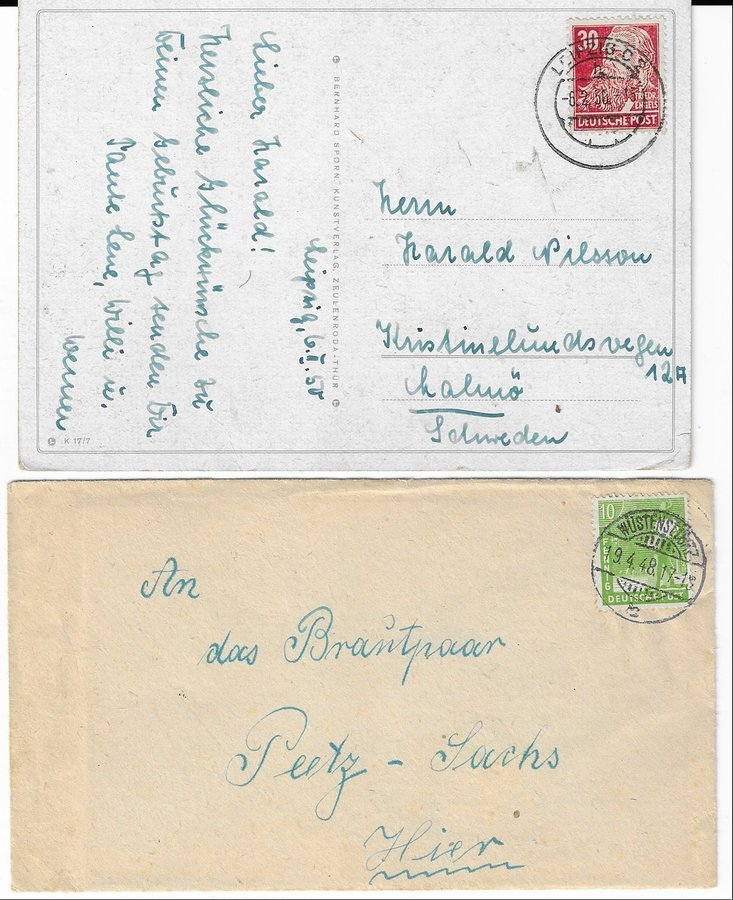 Lieber Harald!
Herzliche Glückwünsche zu
Deinem Geburtstag senden Dir
Tante Lene, Willi u.
Werner
Leipzig, 6. II. 50
BERNHARD SPORN, KUNSTVERLAG, ZEULENRODA-THÜR
K 17/7
30
FRIEDR.
ENGELS
DEUTSCHE POST
LEIPZIG C 2
Herrn
Harald Nilsson
Kristinelundsvegen
12A
Malmö
Schweden
10
PFENNIG
DEUTSCHE POST
9.4.48.17-18
An
das Brautpaar
Peetz - Sachs
Hier